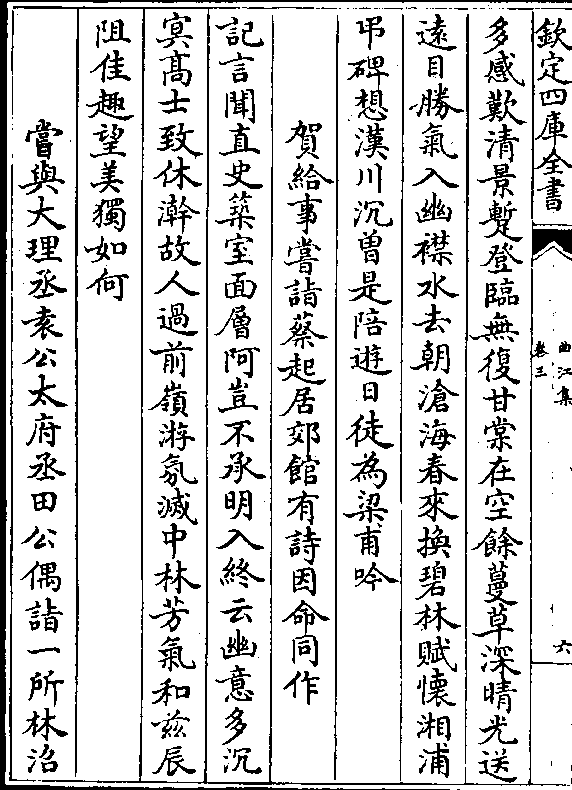 欽定四庫全書
曲江集
卷三
六
多感歎清景暫登臨無復甘棠在空餘蔓草深晴光送
遠目勝氣入幽襟水去朝滄海春來換碧林賦懷湘浦
弔碑想漢川沉曽是陪遊日徒為梁甫吟
賀給事嘗詣蔡起居郊館有詩因命同作
記言聞直史築室面層阿豈不承明入終云幽意多沉
㝠髙士致休澣故人過前嶺游氛滅中林芳氣和兹辰
阻佳趣望美獨如何
嘗與大理丞袁公太府丞田公偶詣一所林沼